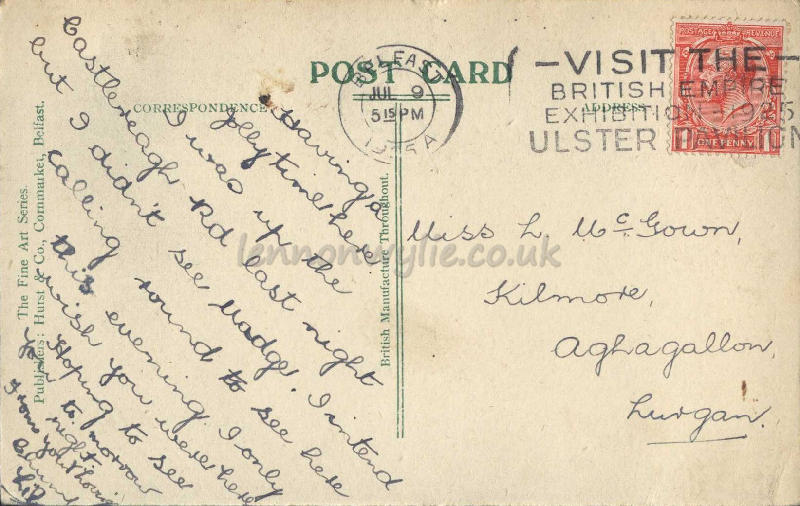 POST CARD
CORRESPONDENCE
ADDRESS
BELFAST
JUL 9
5 15 PM
1925
— VISIT THE —
BRITISH EMPIRE
EXHIBITION 1925
ULSTER PAVILION
POSTAGE REVENUE
ONE PENNY
Having a
jolly time here
I was up the
Castlereagh Rd last night
but I didn't see Madge. I intend
calling round to see here
this evening. I only
wish you were here
Hoping to see
you to-morrow
night
From your loving
Miss L. McGown,
Kilmore,
Aghagallon,
Lurgan.
The Fine Art Series.
Publishers: Hurst & Co., Cornmarket, Belfast.
British Manufacture Throughout.
lennonwylie.co.uk